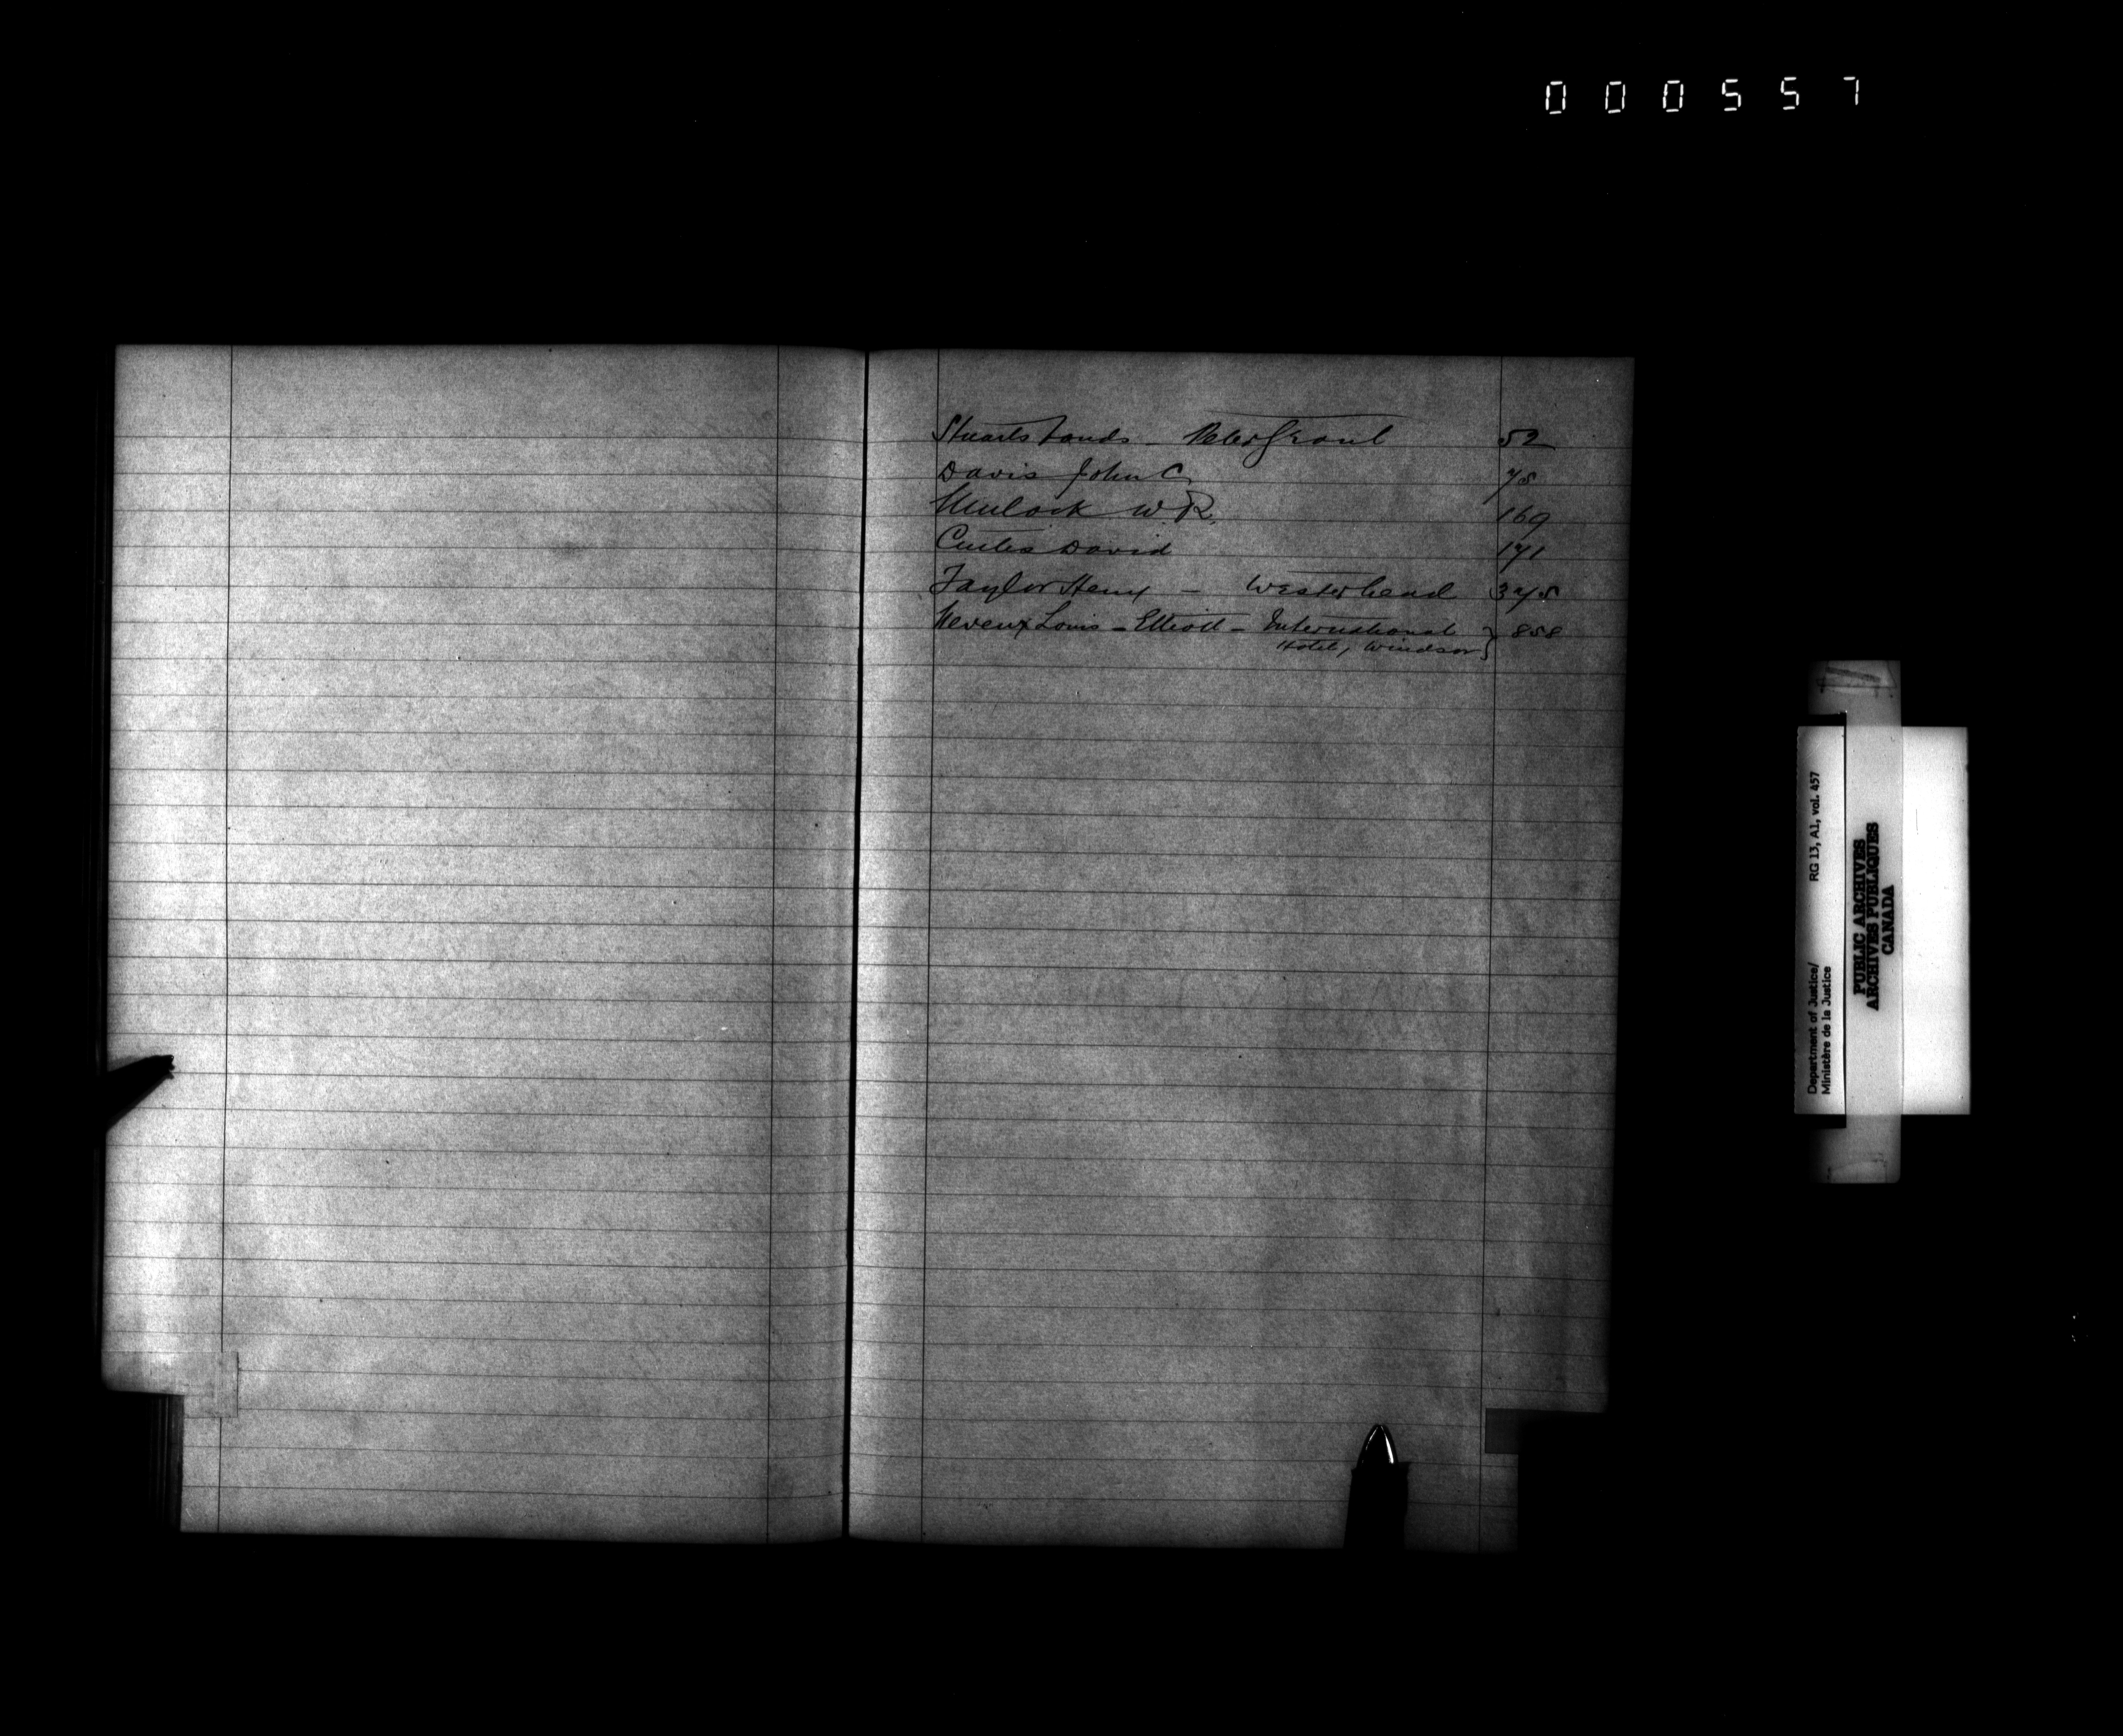 000557
Stuarts bonds - Peter Grant 52
Davis John C 78
Mulock W. R. 169
Curtis David 171
Taylor Henry - Westerhead 378
Neveux Louis - Elliott - International } 858
Hotel, Windsor
Department of Justice/ RG 13, A1, vol. 457
Ministère de la Justice
PUBLIC ARCHIVES
ARCHIVES PUBLIQUES
CANADA